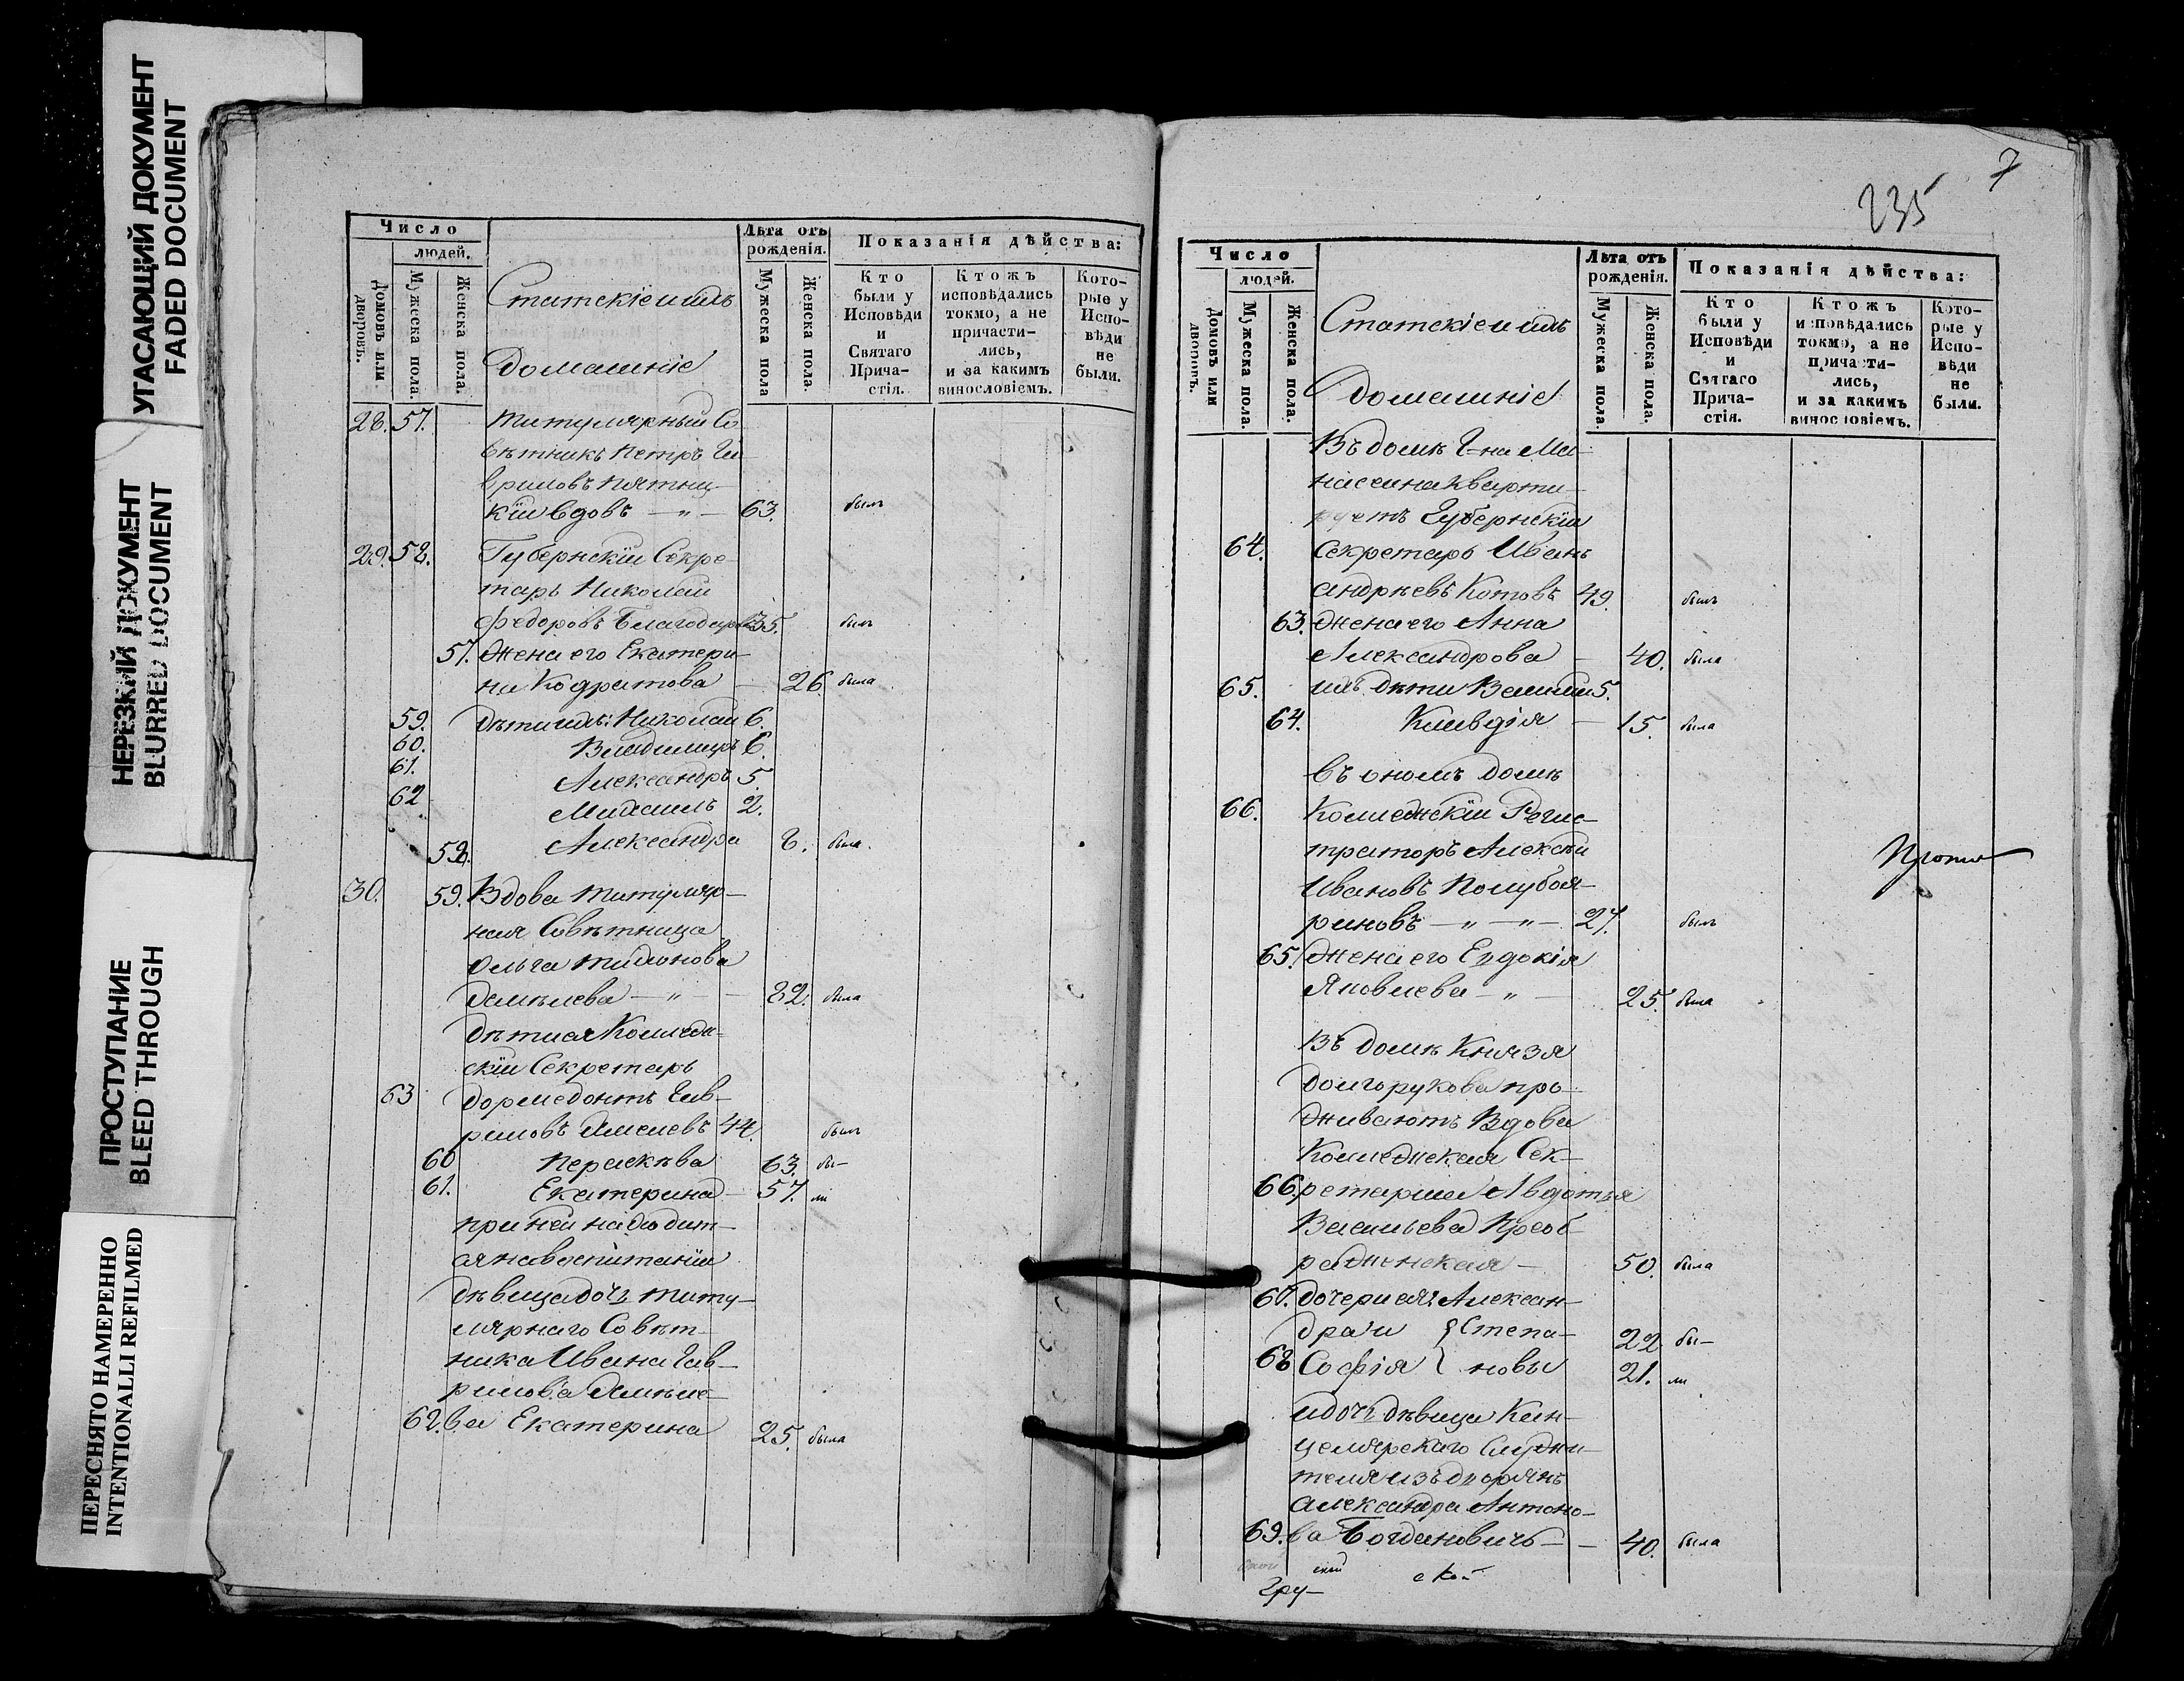 УГАСАЮЩИЙ ДОКУМЕНТ
FADED DOCUMENT
НЕРЕЗКИЙ ДОКУМЕНТ
BLURRED DOCUMENT
ПРОСТУПАНИЕ
BLEED THROUGH
ПЕРЕСНЯТО НАМЕРЕННО
INTENTIONALLI REFILMED
Число
людей.
Домовъ или дворовъ.
Мужеска пола.
Женска пола.
Статскіе и ихъ
домашніе
Лѣта отъ рожденія.
Мужеска пола
Женска пола.
Показанія дѣйства:
Кто были у Исповѣди и Святаго Прича-стія.
Ктожъ исповѣдались токмо, а не причасти-лись, и за какимъ винословіемъ.
Кото-рые у Испо-вѣди не были.
28. 57. Титулярный Со
вѣтникъ Петръ Га
вриловъ Пятниц-
кій вдовъ — " — 63. былъ
29. 58. Губернскій Секре-
тарь Николай
Федоровъ Благодаров 35. былъ
57. Жена его Екатери-
на Кодратова — 26 была
59. дѣти ихъ: Николай 6.
60. Владимиръ 6.
61. Александръ 5.
62 Михаилъ 2.
58. Александра 8. была.
30. 59. Вдова Титуляр-
ная Совѣтница
Ольга Тихонова
Амѣлева — " — — 82. была
дѣти ея Коллеж-
скій Секретарь
63 Дормедонтъ Гав-
риловъ Амелевъ 44. былъ
60 Параскѣва 63. бы-
61. Екатерина — 57. ли
при ней находит-
ся на воспитаніи
дѣвица дочь Титу-
лярнаго Совѣт-
ника Ивана Гав-
рилова Амѣле-
62. ва Екатерина 25. была
235
7
Число
людей.
Домовъ или дворовъ.
Мужеска пола.
Женска пола.
Статскіе и ихъ
домашніе
Лѣта отъ рожденія.
Мужеска пола.
Женска пола.
Показанія дѣйства:
Кто были у Исповѣди и Святаго Прича-стія.
Ктожъ исповѣдались токмо, а не причасти-лись, и за какимъ винословіемъ.
Кото-рые у Испо-вѣди не были.
Въ домѣ Г-на Ма-
насеина кварти-
руетъ Губернскій
64. Секретарь Иванъ
Андрѣевъ Котовъ 49. былъ
63. Жена его Анна
Александрова — 40. была
65. ихъ дѣти Василій 5.
64. Клавдія — 15. была
въ ономъ домѣ
66. Коллежскій Регис-
траторъ Алексѣй
Ивановъ Полубоя-
риновъ — " — " — 27. былъ
65. Жена его Евдокія
Яковлева — " — 25. была
Въ домѣ Князя
Долгорукова про-
живаютъ Вдова
Коллежская Сек-
66. ретарша Авдотья
Васильева Преоб-
раженская — 50. была
67. дочери ея: Алексан-
дра и } Степа- 22 бы-
68 Софія } новы 21. ли
и дочь дѣвица Кан-
целярскаго Служи-
теля изъ дворянъ
Александра Антоно-
69. ва Богдановичъ — — 40. была